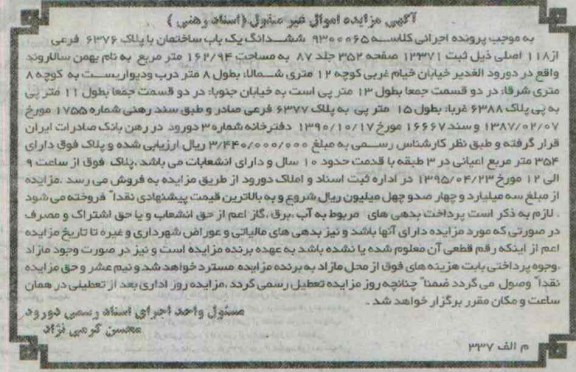 آگهی مزایده اموال غیر منقول (اسناد رهنی)
به موجب پرونده اجرائی کلاسه ۹۳۰۰۰۶۵ ششدانگ یک باب ساختمان با پلاک ۶۳۷۶ فرعی
از ۱۱۸ اصلی ذیل ثبت ۱۲۳۷۱ صفحه ۳۵۲ جلد ۸۷ به مساحت ۱۶۲/۹۴ متر مربع به نام بهمن سالاروند
واقع در دورود الغدیر خیابان خیام غربی کوچه ۱۲ متری شمالا: بطول ۸ متر درب ودیواریست به کوچه ۸
متری شرقا: در دو قسمت جمعا بطول ۱۳ متر پی است به خیابان جنوبا: در دو قسمت جمعا بطول ۱۱ متر پی
به پی پلاک ۶۳۸۸ غربا: بطول ۱۵ متر پی به پلاک ۶۳۷۷ فرعی صادر و طبق سند رهنی شماره ۱۷۵۵ مورخ
۱۳۸۷/۰۲/۰۷ و سند ۱۶۶۶۷ مورخ ۱۳۹۰/۱۰/۱۷ دفترخانه شماره ۳ دورود در رهن بانک صادرات ایران
قرار گرفته و طبق نظر کارشناس رسمی به مبلغ ۳/۴۴۰/۰۰۰/۰۰۰ ریال ارزیابی شده و پلاک فوق دارای
۳۵۴ متر مربع اعیانی در ۳ طبقه با قدمت حدود ۱۰ سال و دارای انشعابات می باشد .پلاک فوق از ساعت ۹
الی ۱۲ مورخ ۱۳۹۵/۰۴/۲۳ در اداره ثبت اسناد و املاک دورود از طریق مزایده به فروش می رسد .مزایده
از مبلغ سه میلیارد و چهار صدو چهل میلیون ریال شروع و به بالاترین قیمت پیشنهادی نقداً فروخته می شود
. لازم به ذکر است پرداخت بدهی های مربوط به آب ،برق ،گاز اعم از حق انشعاب و یا حق اشتراک و مصرف
در صورتی که مورد مزایده دارای آنها باشد و نیز بدهی های مالیاتی و عوراض شهرداری و غیره تا تاریخ مزایده
اعم از اینکه رقم قطعی آن معلوم شده یا نشده باشد به عهده برنده مزایده است و نیز در صورت وجود مازاد
.وجوه پرداختی بابت هزینه های فوق از محل مازاد به برنده مزایده مسترد خواهد شد و نیم عشر و حق مزایده
نقداً وصول می گردد ضمناً چنانچه روز مزایده تعطیل رسمی گردد ،مزایده روز اداری بعد از تعطیلی در همان
ساعت و مکان مقرر برگزار خواهد شد .
مسئول واحد اجرای اسناد رسمی دورود
محسن کرمی نژاد
م الف ۳۳۷